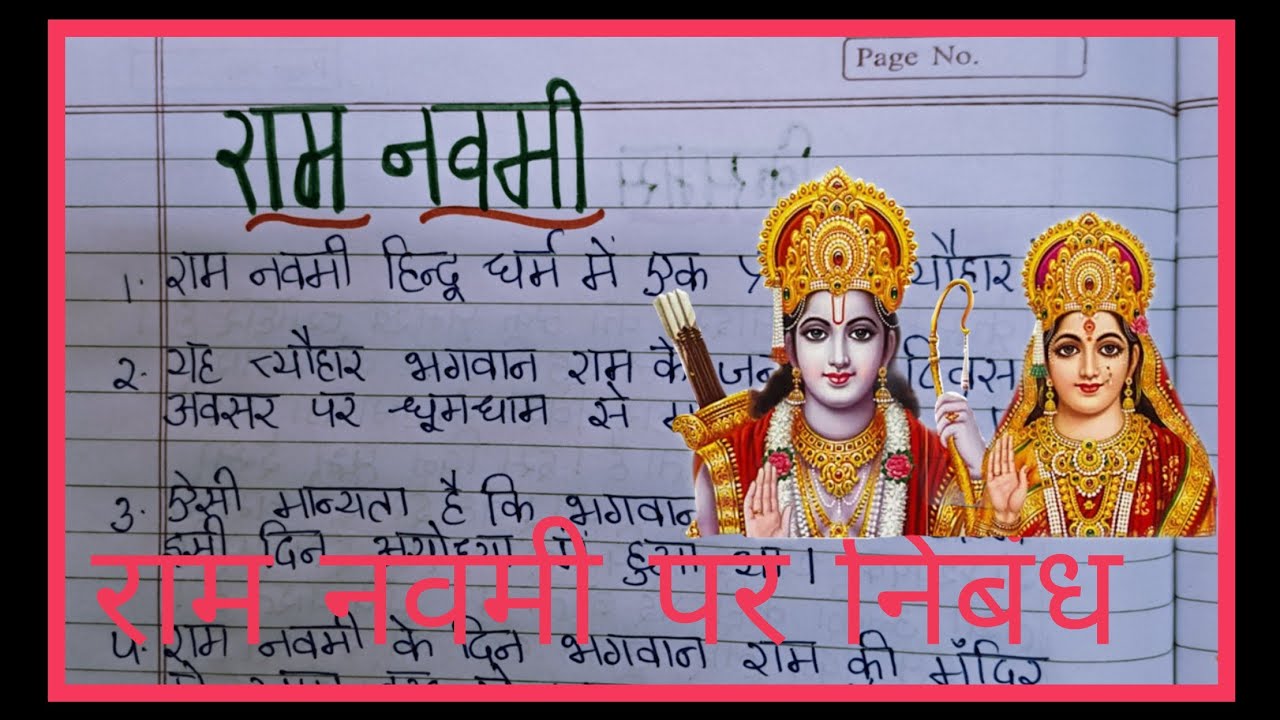 Page No.
राम नवमी
1. राम नवमी हिन्दू धर्म में एक त्यौहार
2. यह त्यौहार भगवान राम के दिवस
अवसर पर धूमधाम से
3. ऐसी मान्यता है कि भगवान
इसी दिन अयोध्या में हुआ था।
राम नवमी पर निबंध
4. राम नवमी के दिन भगवान राम की मंदिर